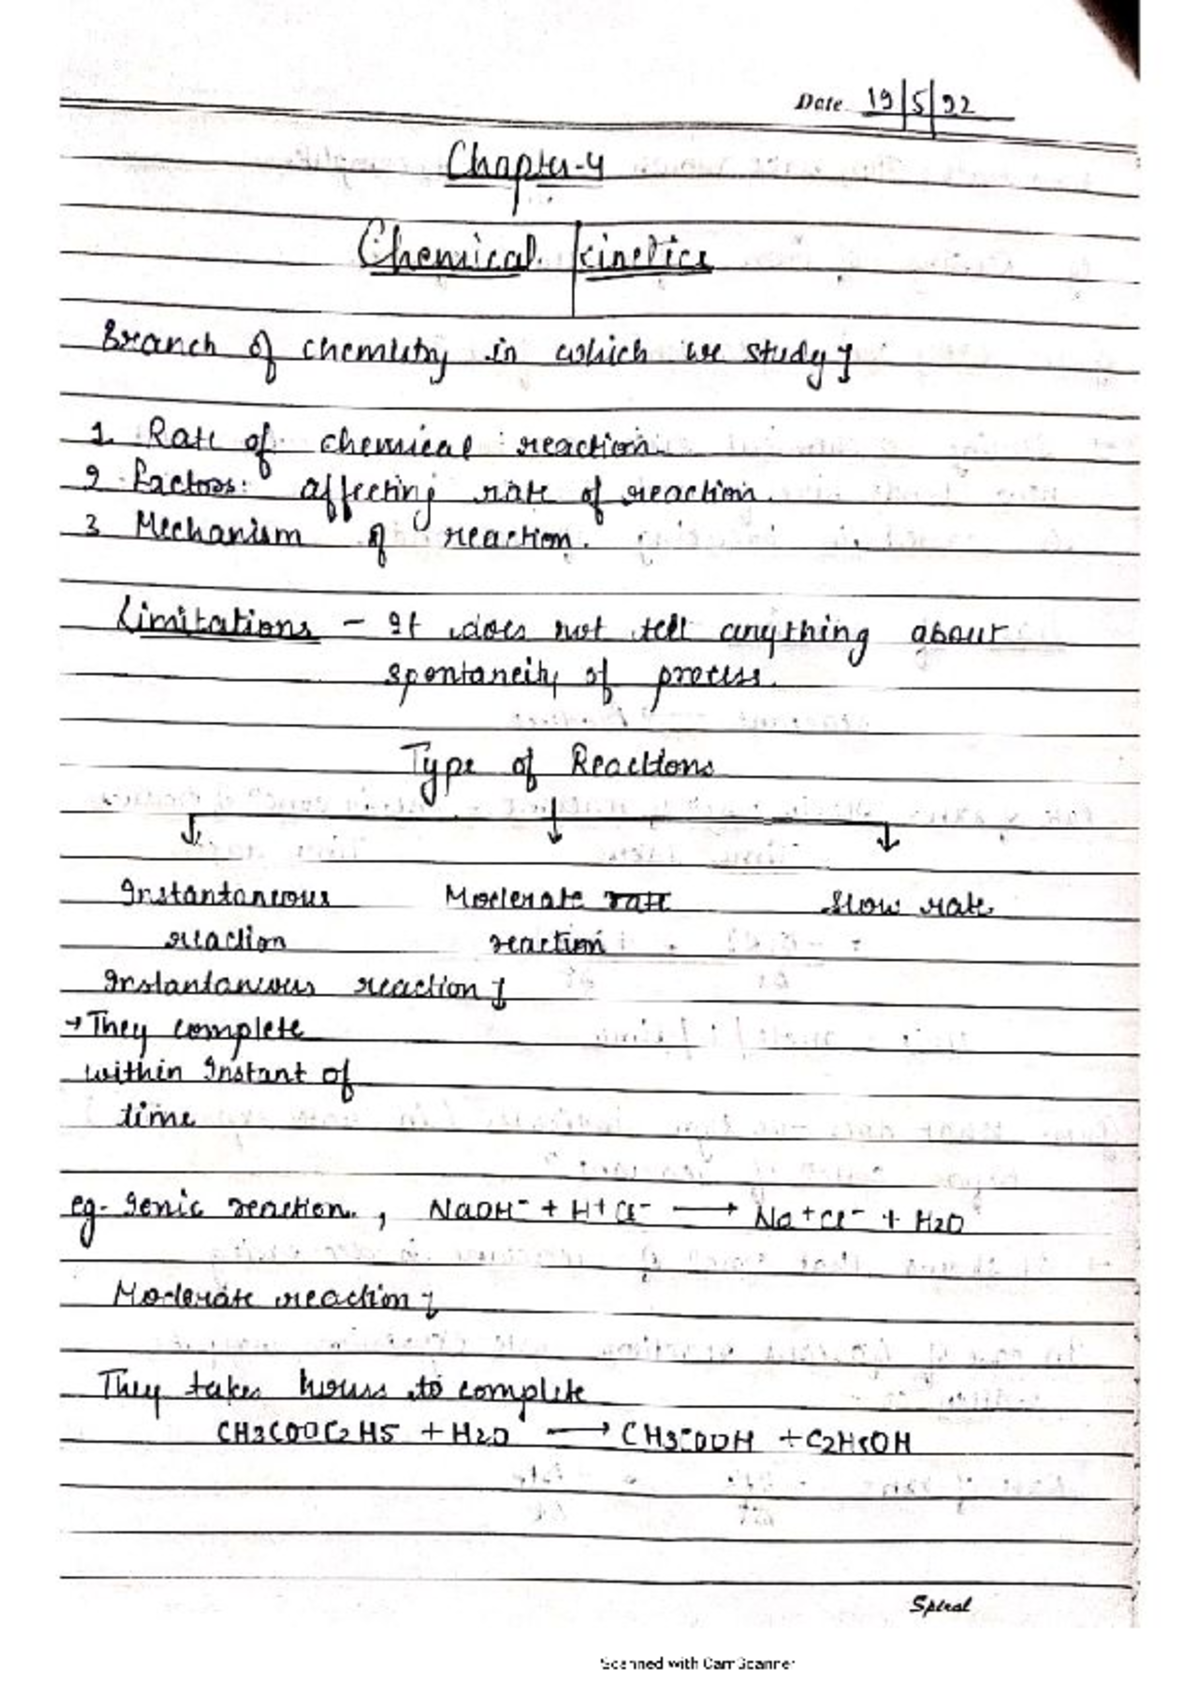 Date 19/5/22
Chapter-4
Chemical kinetics
Branch of chemistry in which we study
1. Rate of chemical reaction.
2. Factors affecting rate of reaction.
3 Mechanism of reaction.
Limitations - It does not tell anything about
spontaneity of process.
Type of Reactions
Instantaneous Moderate rate Slow rate.
reaction reaction
Instantaneous reaction
→ They complete
within Instant of
time
eg- Ionic reaction, NaOH⁻ + H+Cl⁻ → Na+Cl⁻ + H2O
Moderate reaction
They takes hours to complete
CH3COOC2H5 + H2O → CH3COOH + C2H5OH
Spiral
Scanned with CamScanner